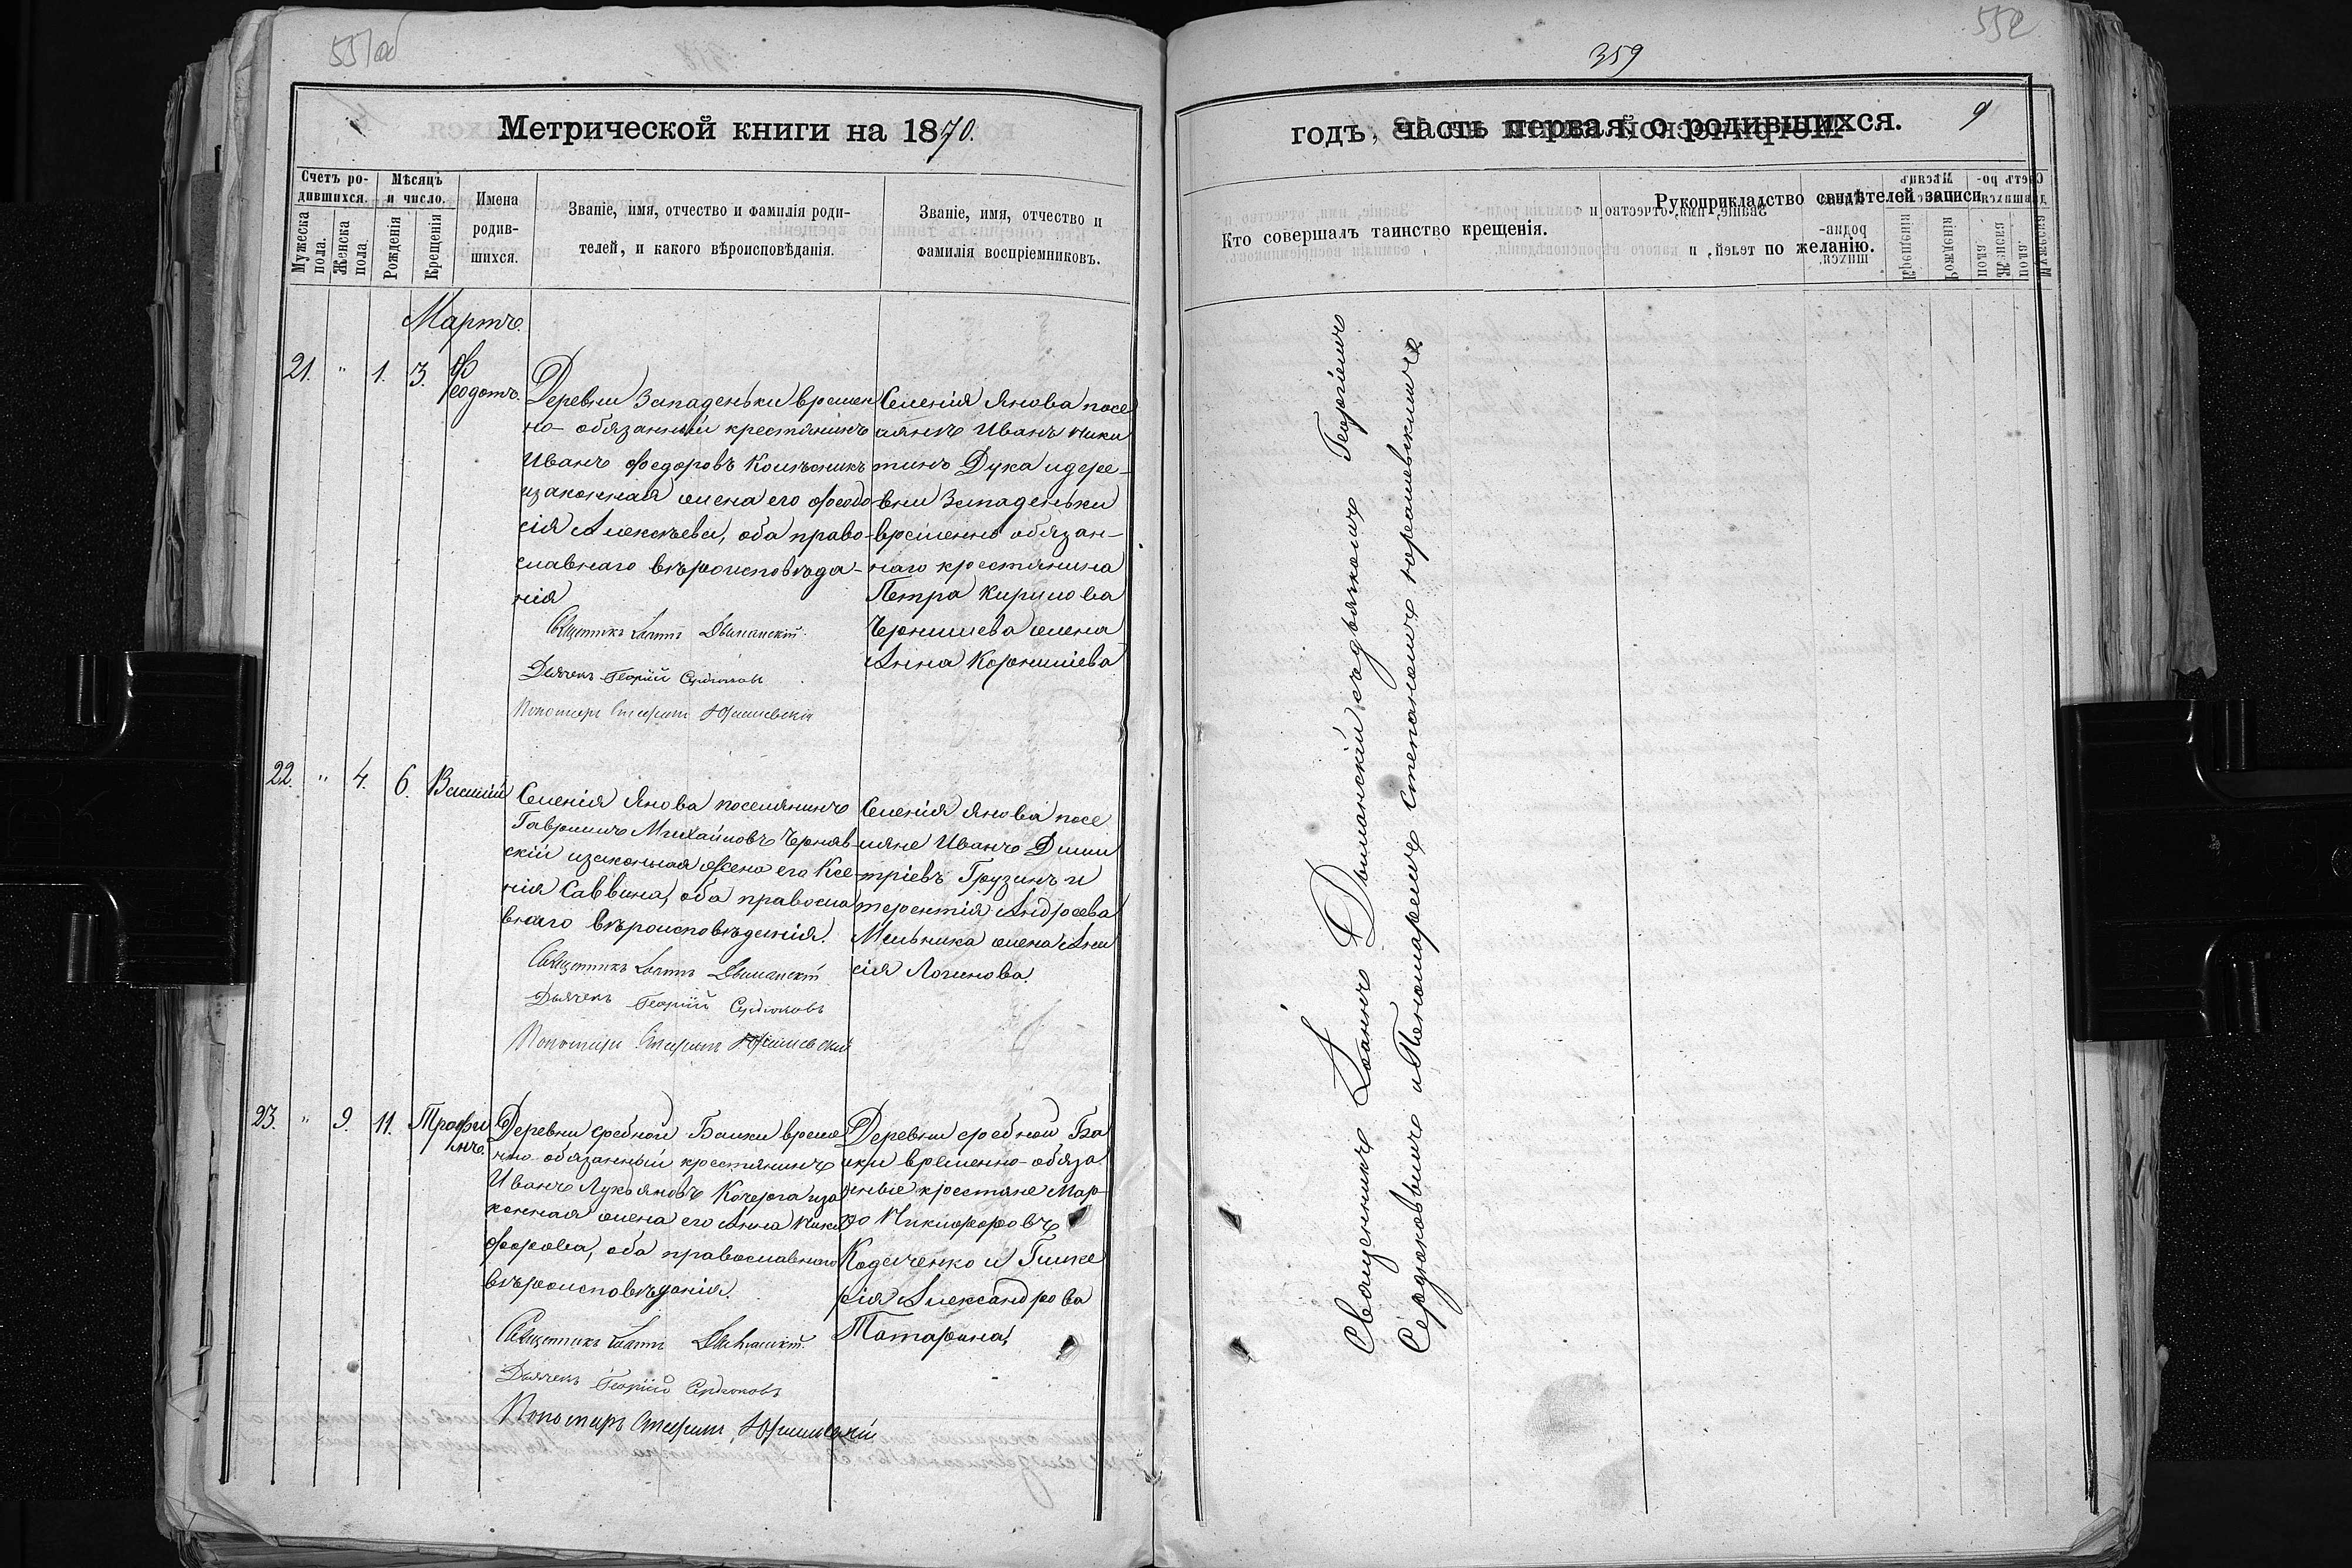 551об
Метрической книги на 1870.
Счетъ ро-
дившихся.
Мужеска
пола.
Женска
пола.
Мѣсяцъ
и число.
Рожденія
Крещенія
Имена
родив-
шихся.
Званіе, имя, отчество и фамилія роди-
телей, и какого вѣроисповѣданія.
Званіе, имя, отчество и
фамилія воспріемниковъ.
Мартъ.
21. " 1. 3. Феодотъ.
Деревни Западеньки времен
но-обязанный крестянинъ
Иванъ Федоровъ
изаконная жена его Феодо
сія Алексѣева, оба право-
славнаго вѣроисповѣда-
нія
Священникъ Іоаннъ Двиманскій.
Дьячекъ Георгій Сердюковъ
Пономарь Стефанъ Юрашевскій
Селенія Янова посе
лянинъ Иванъ Ники
тинъ Дука идере-
вни Западеньки
временно обязан-
наго крестянина
Петра Кирилова
Чернишева жена
Анна Корнишева
22. " 4. 6. Василій
Селенія Янова поселянинъ
Гавриилъ Михайловъ Черняв
скій изаконная жена его Ксе-
нія Саввина, оба правосла
внаго вѣроисповѣденія.
Священникъ Іоаннъ Двиманскій
Дьячекъ Георгій Сердюковъ
Пономарь Стефанъ Юрашевскій
Селенія Янова посе
ляне Иванъ Дими
тріевъ Грузинъ и
терентія Андреева
Мельника жена Ани
сія Логинова.
23. " 9. 11. Трофи
мъ.
Деревни средной Балки време
нно-обязанный крестянинъ
Иванъ Лукьяновъ Кочерга иза
конная жена его Анна Ники
форова, оба православнаго
вѣроисповѣданія.
Священникъ Іоаннъ Двиманскій.
Дьячекъ Георгій Сердюковъ
Пономарь Стефанъ Юрашевскій
Деревни средной Ба
лки временно-обяза
нные крестяне Мар-
ко Никифоровъ
Коденченко и Глике
рія Александрова
Татарина.
552
359
9
годъ, часть первая, о родившихся.
Кто совершалъ таинство крещенія.
Рукоприкладство свидѣтелей записи
по желанію.
Священникъ Іоаннъ Двиманскій съдьячкомъ Георгіемъ
Сердюковымъ иПономаремъ Степаномъ Юрашевскимъ.